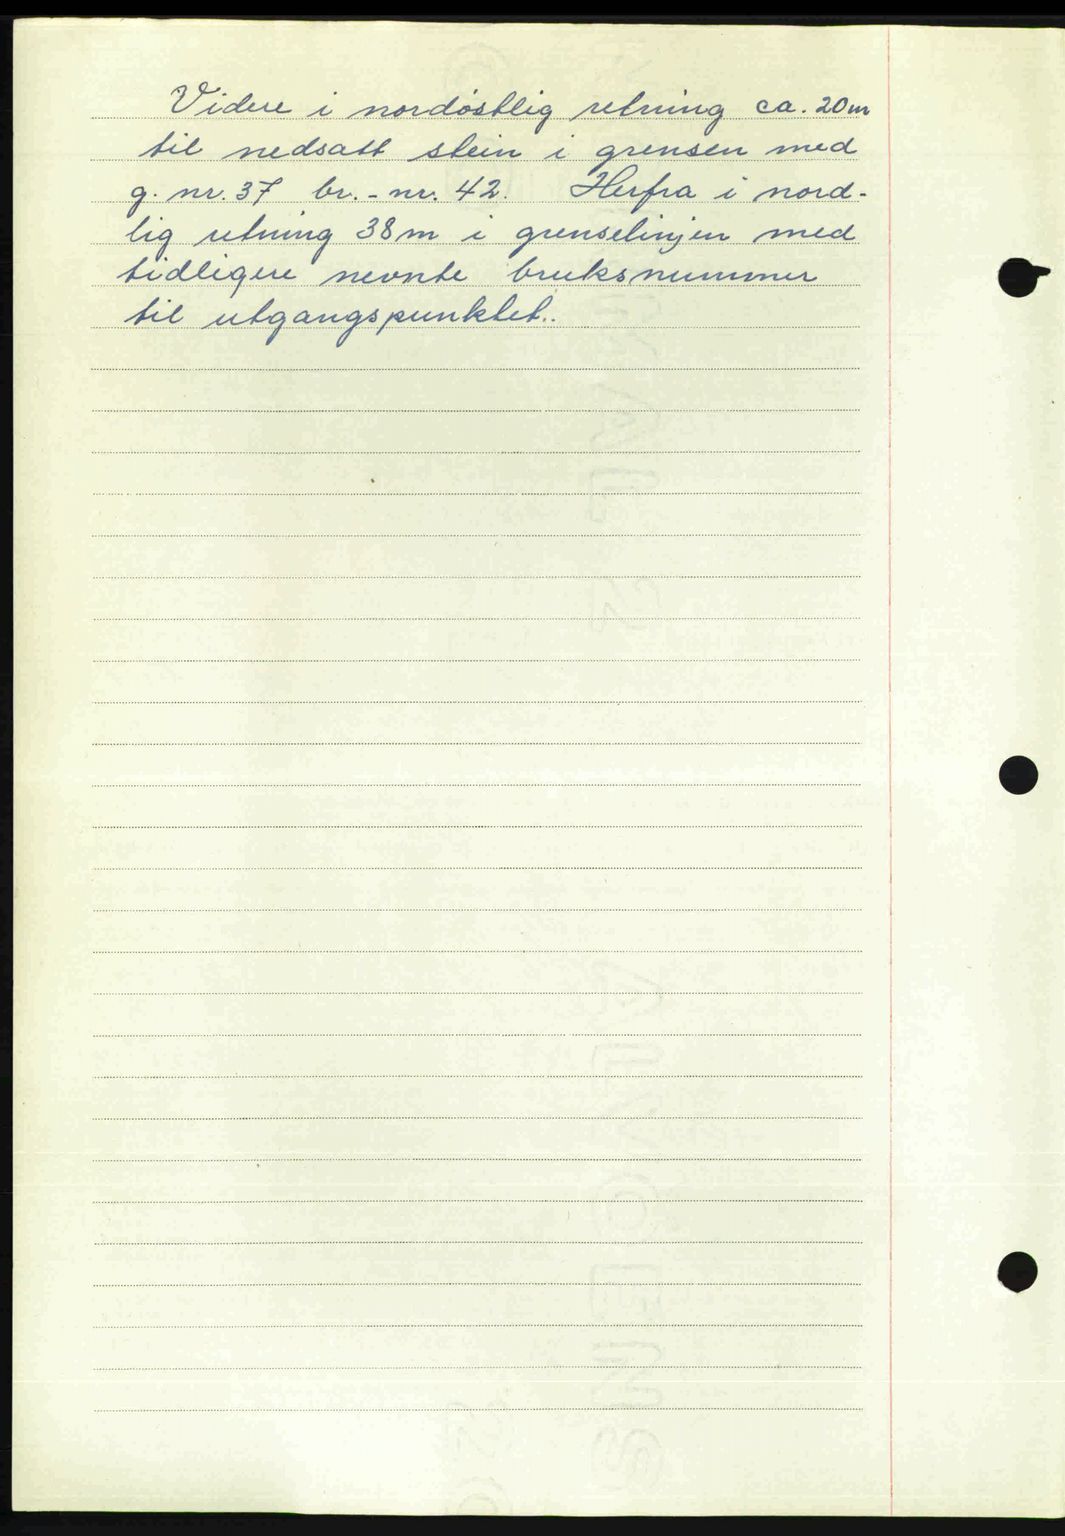 Videre i nordöstlig retning ca. 20m
til nedsatt stein i grensen med
g. nr. 37 br.- nr. 42. Herfra i nord-
lig retning 38m i grenselinjen med
tidligere nevnte bruksnummer
til utgangspunktet..